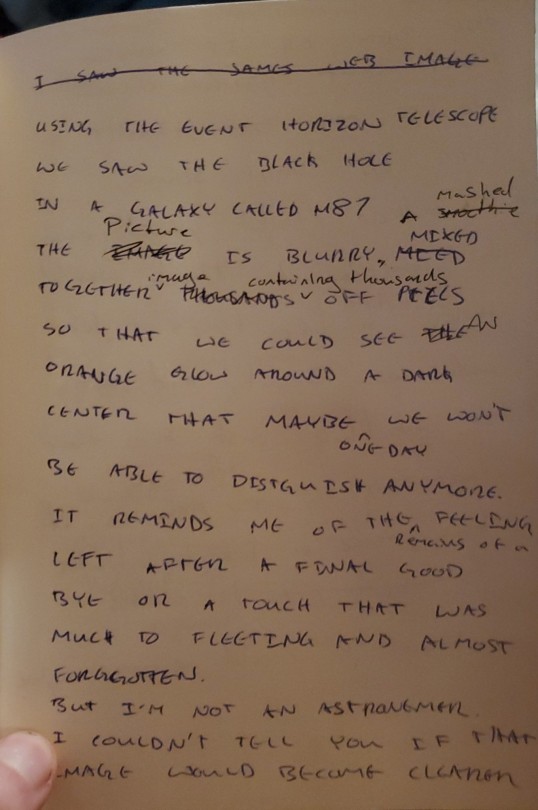 I SAW THE SAMES WEB IMAGE
USING THE EVENT HORIZON TELESCOPE
WE SAW THE BLACK HOLE
mashed
IN A GALAXY CALLED M87 A smoothie
Picture MIXED
THE IMAGE IS BLURRY, MEED
image containing thousands
TOGETHER THOUSANDS OFF PEELS
SO THAT WE COULD SEE THE AN
ORANGE GLOW AROUND A DARK
CENTER THAT MAYBE WE WON'T
ONE DAY
BE ABLE TO DISTGUISH ANYMORE.
IT REMINDS ME OF THE FEELING
Remains of a
LEFT AFTER A FINAL GOOD
BYE OR A TOUCH THAT WAS
MUCH TO FLEETING AND ALMOST
FORGGOTTEN.
BUT I'M NOT AN ASTRONEMER.
I COULDN'T TELL YOU IF THAT
IMAGE WOULD BECOME CLEARER